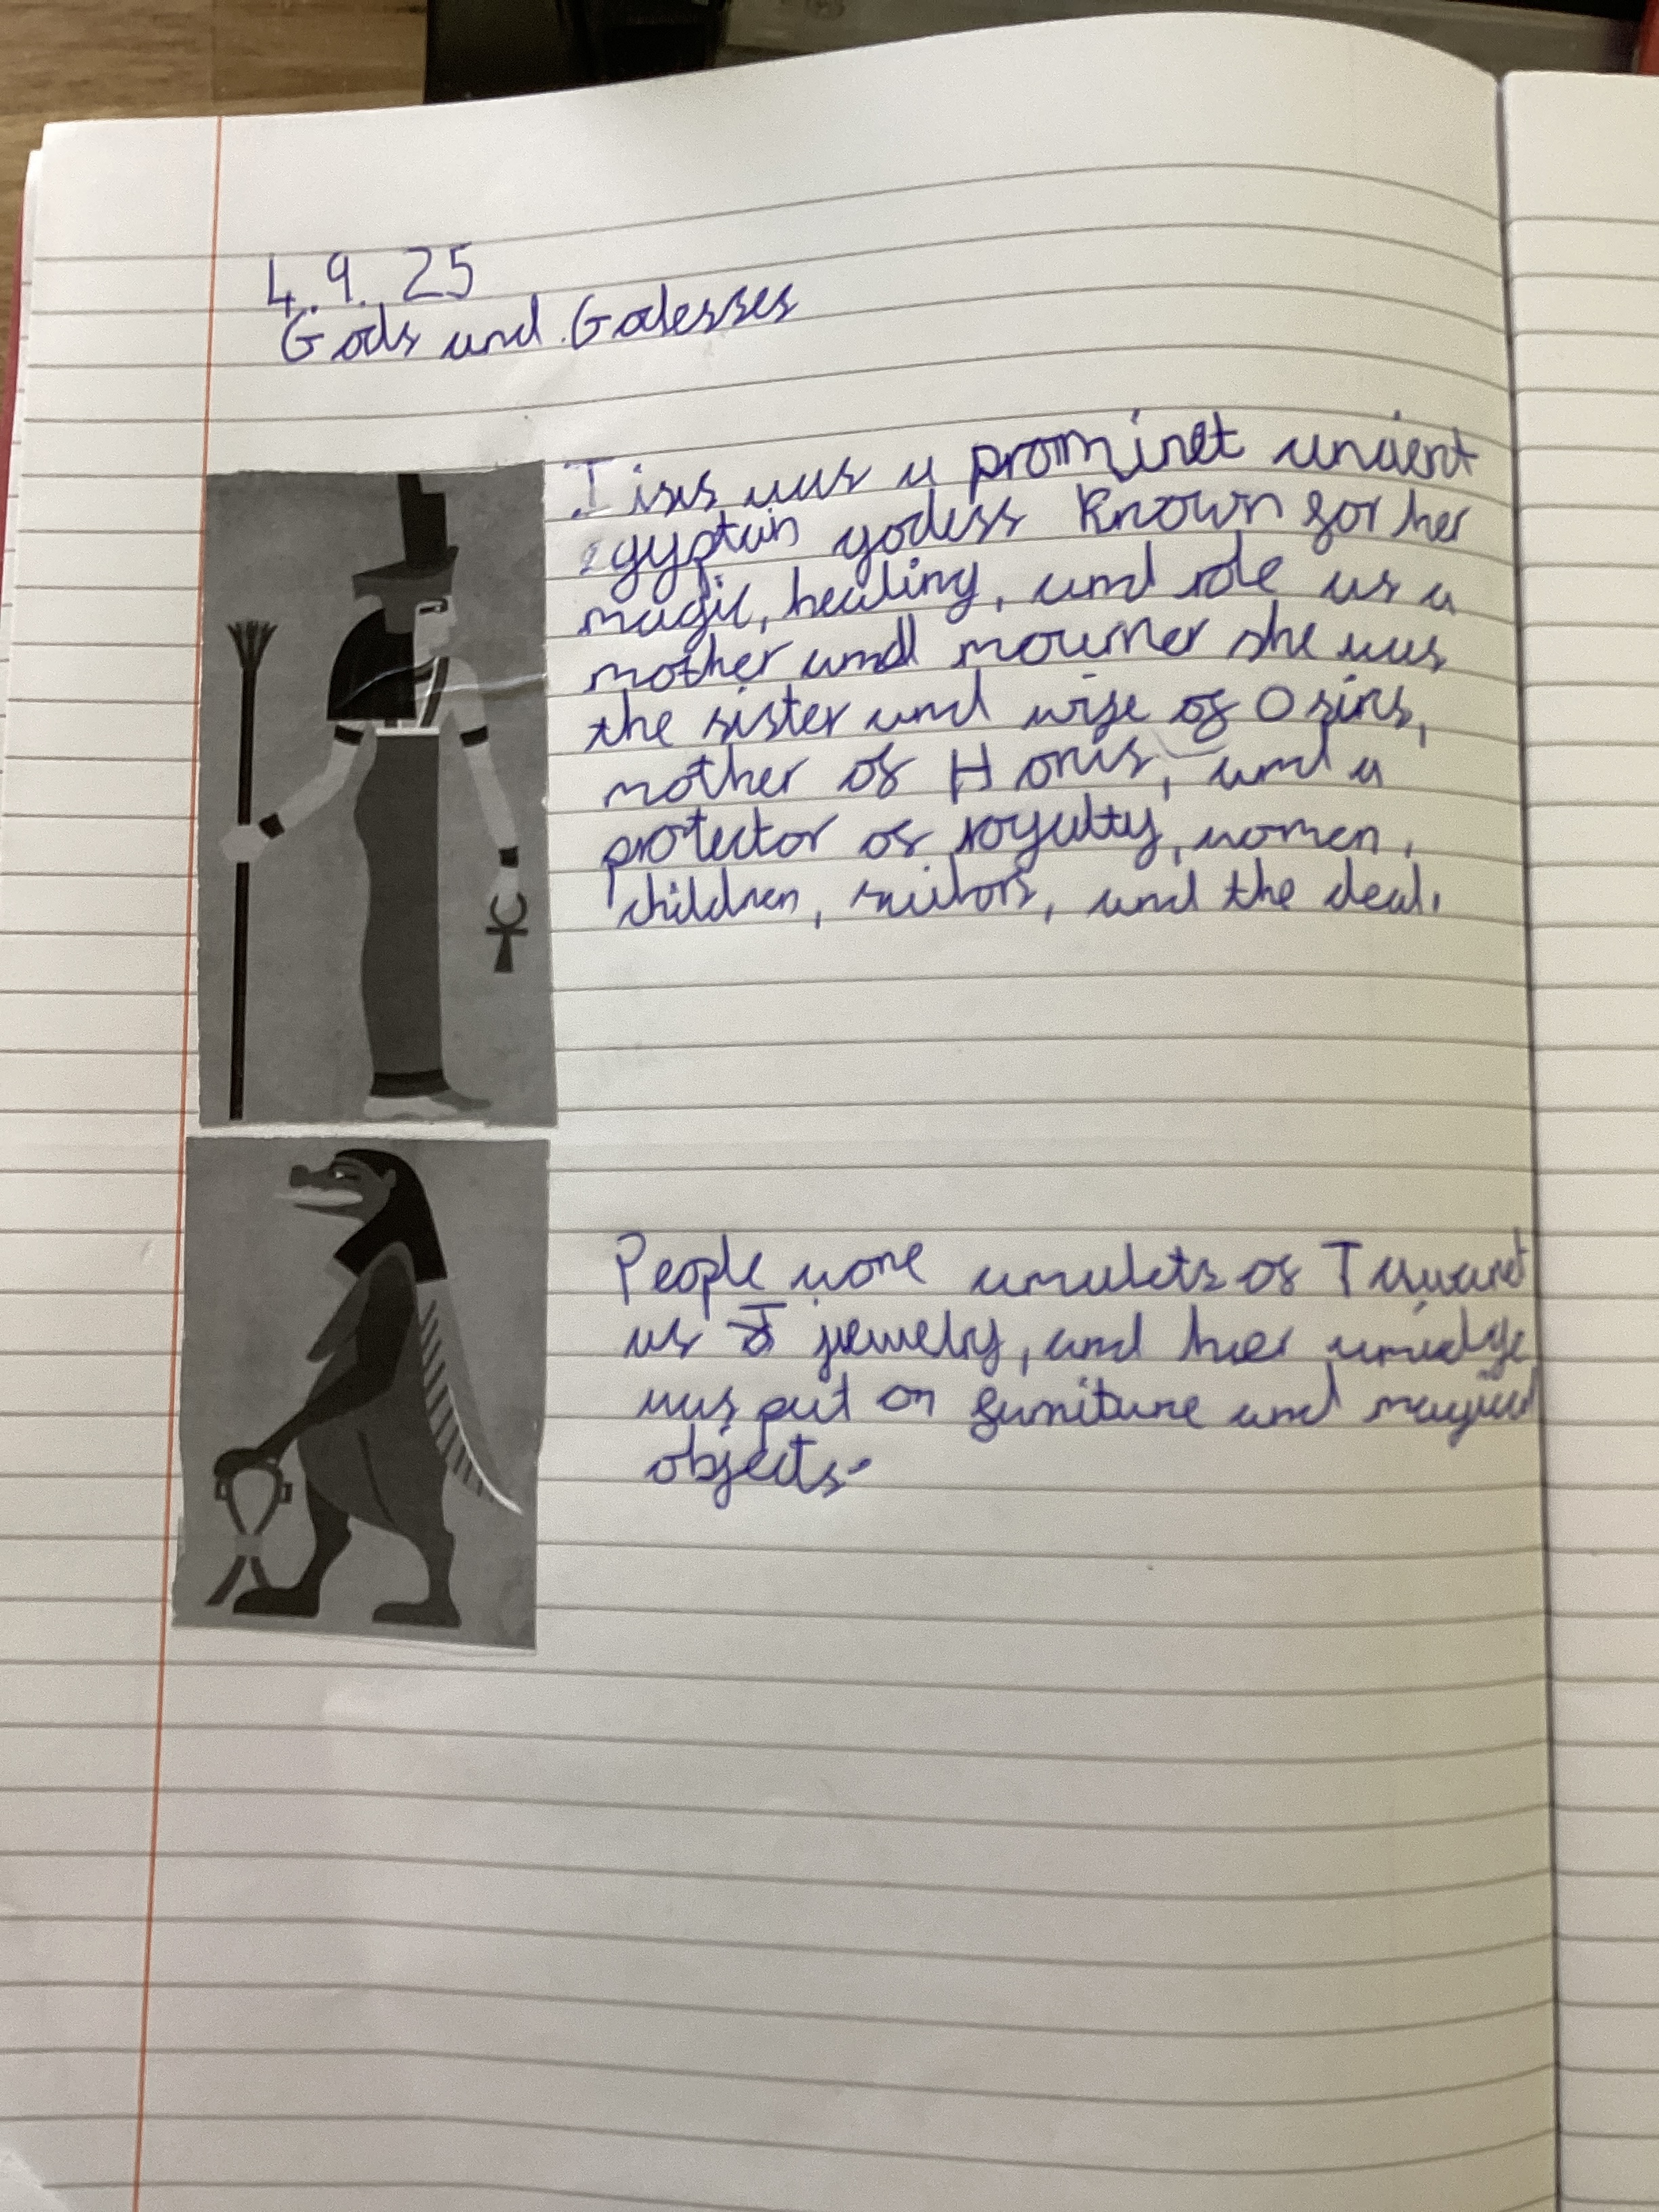 4.9.25
Gods and Godesses
Isis was a prominet ancient
egyptain godess known for her
magic, healing, and role as a
mother and mourner she was
the sister and wife of Osiris,
mother of Horus, and a
protector of royalty, women,
children, sailors, and the dead.
People wore amulets of Tawaret
as jewelry, and her
was put on furniture and magical
objects.